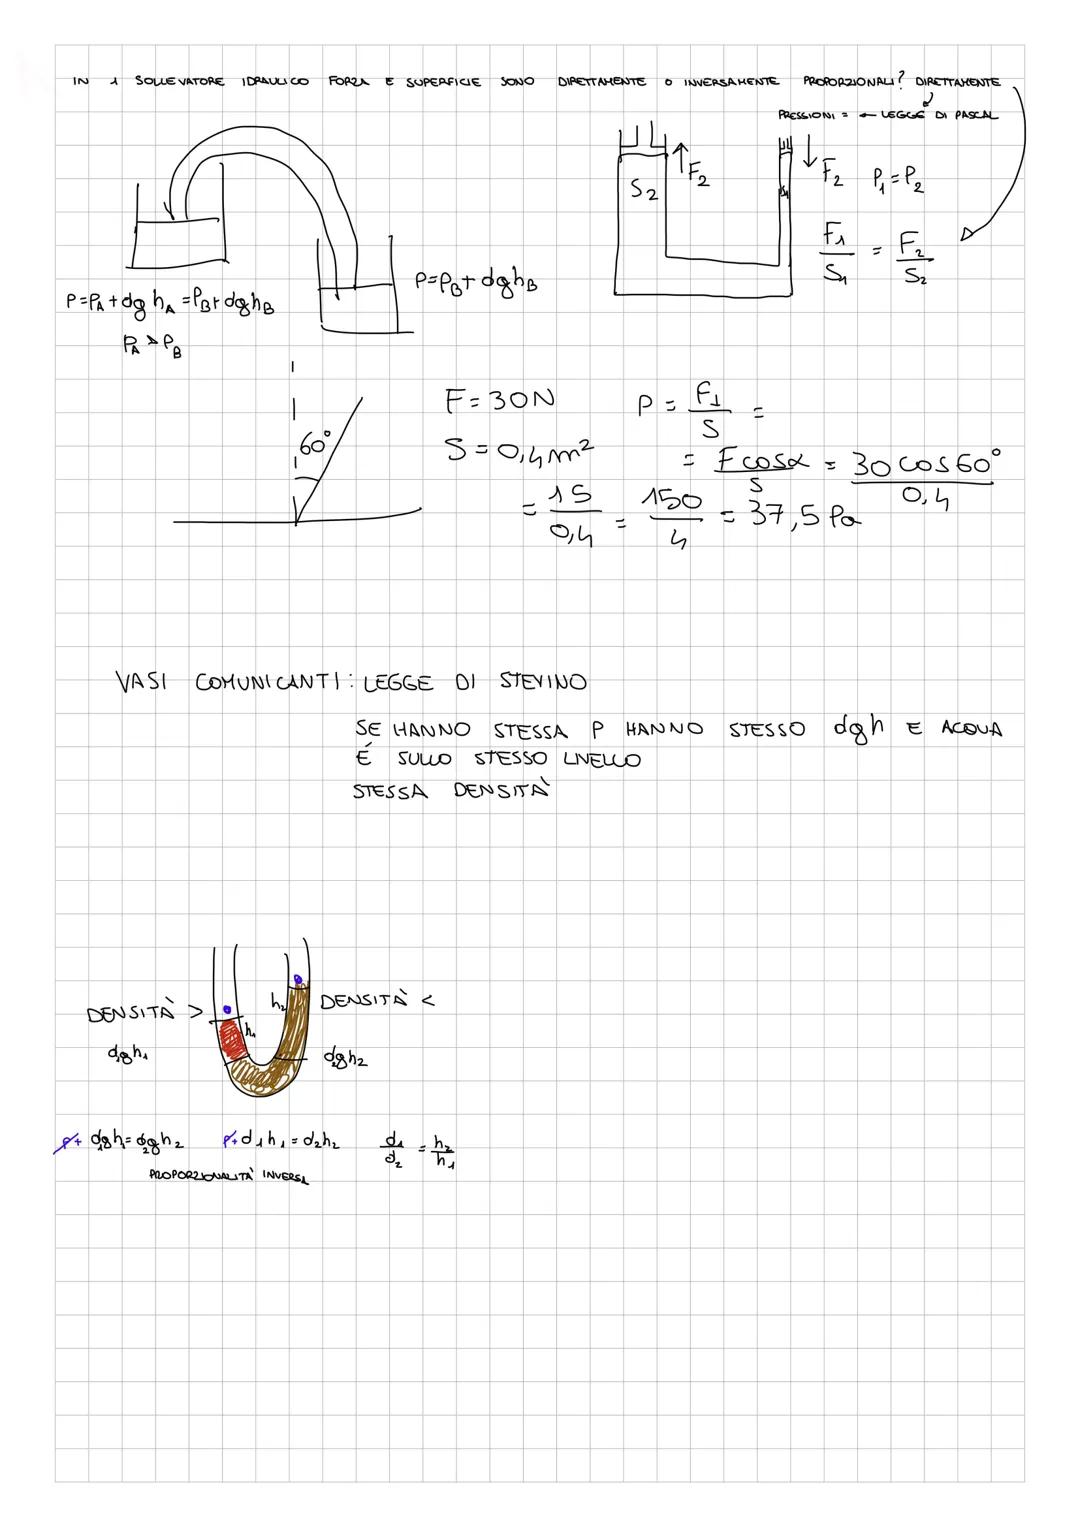 IN 1 SOLLEVATORE IDRAULICO FORZA E SUPERFICIE SONO DIRETTAMENTE O INVERSAMENTE PROPORZIONALI? DIRETTAMENTE
PRESSIONI = ← LEGGE DI PASCAL
S2 ↑F2 S1 ↓F2 P1=P2
F1/S1 = F2/S2
P=PB+dghB
P=PA+dghA=PB+dghB
PA > PB
60°
F=30N P = F1/S =
S=0,4m² = Fcosα/S = 30cos60°/0,4
= 15/0,4 = 150/4 = 37,5 Pa
VASI COMUNICANTI: LEGGE DI STEVINO
SE HANNO STESSA P HANNO STESSO dgh E ACQUA
É SULLO STESSO LIVELLO
STESSA DENSITÀ
DENSITÀ > h1 h2 DENSITÀ <
d1gh1 d2gh2
P+ d1gh1=d2gh2 P+d1h1=d2h2 d1/d2 = h2/h1
PROPORZIONALITÀ INVERSA